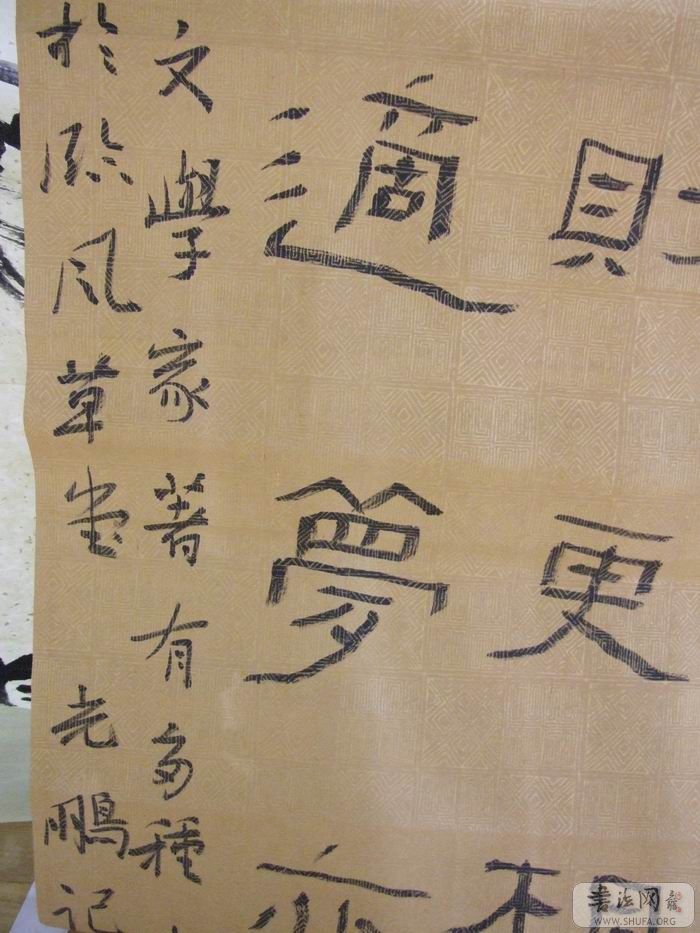 則更相
適夢亦
文學家著有多種
於风草堂 光鵬記
书法网
WWW.SHUFA.ORG